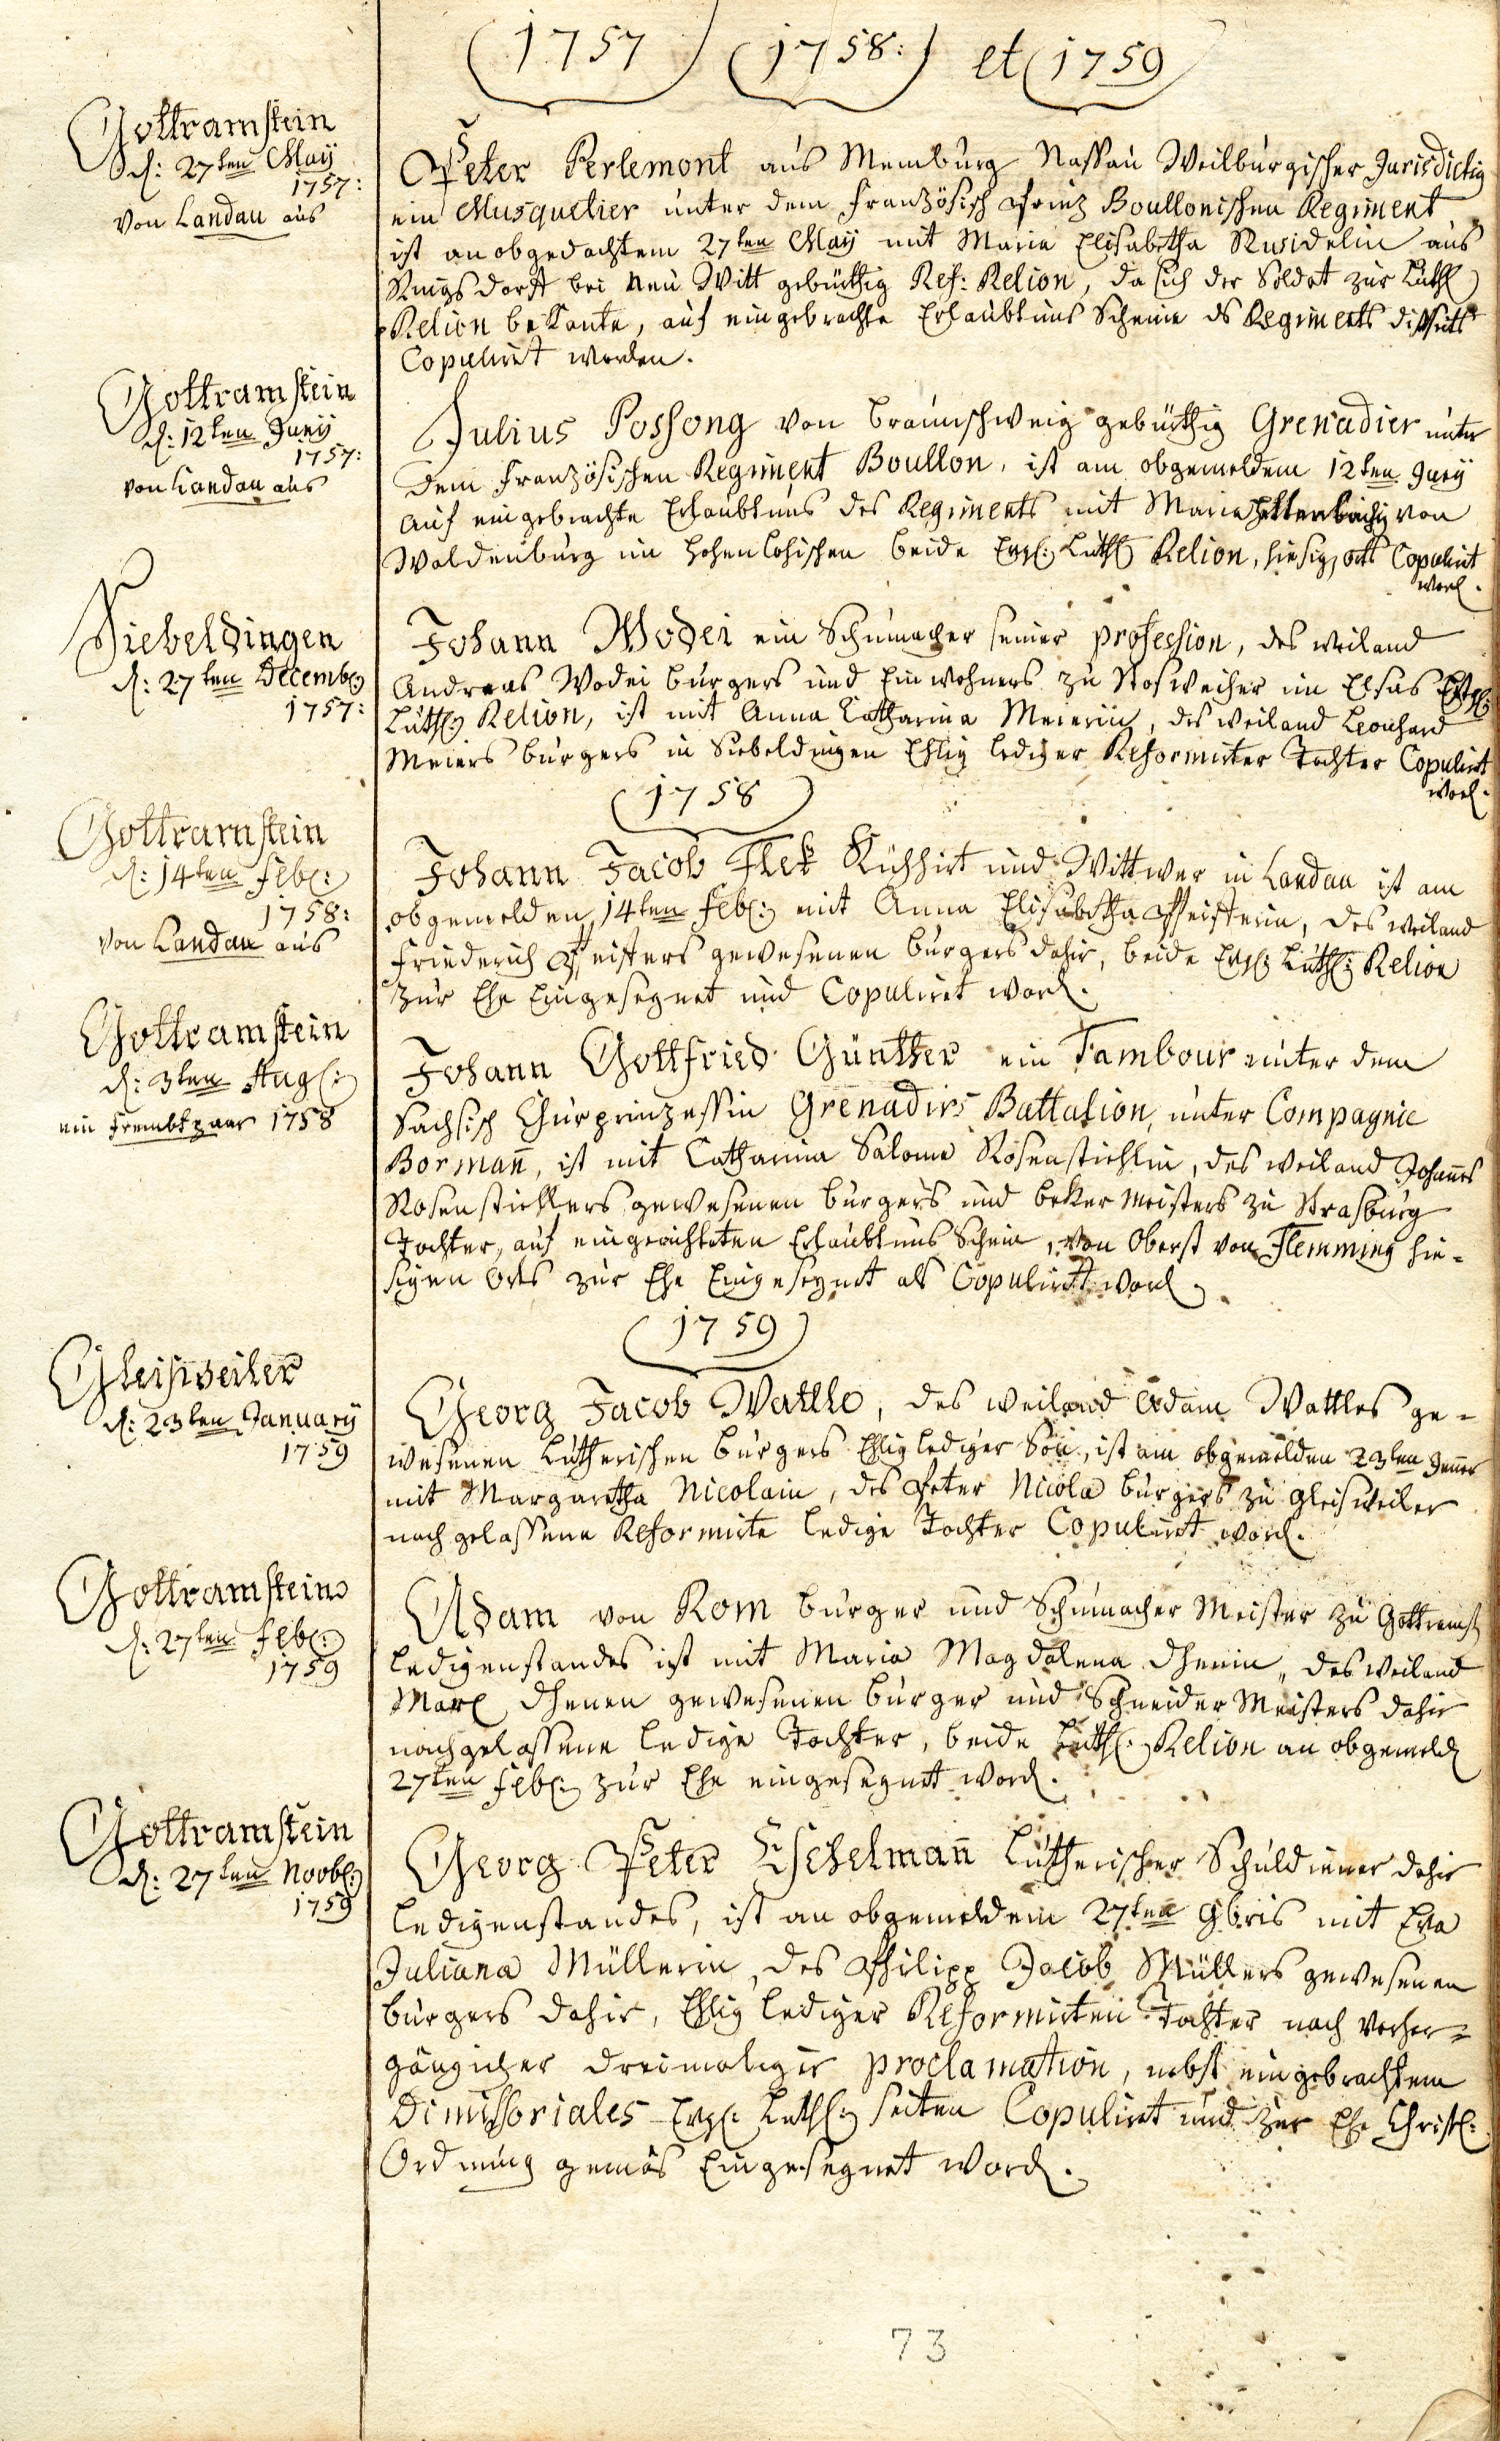 1757 1758: et 1759
Gottramstein
d: 27ten Maÿ
1757:
von Landau aus
Peter Perlemont aus Memburg Nassau Weilburgischer Jurisdictig
ein Musquetier unter dem Französisch Prinz Boullonischen Regiment
ist an obgedachtem 27ten Maÿ mit Maria Elisabetha aus
Ringsdorff bei Neu Witt gebürthig Ref: Relion, da sich der Soldat zur Luth
Relion bekante, auf eingebrachte Erlaubtnus Scheine ds Regiments
Copulirt worden.
Gottramstein
d: 12ten Junÿ
1757:
von Landau aus
Julius Possong von Braunschweig gebürthig Grenadier unter
dem Französischen Regiment Boullon, ist am obgemeldem 12ten Junÿ
auf eingebrachte Erlaubtnus des Regiments mit Maria von
Waldenburg im Hohenlohischen beide Evgl: Luth Relion, hiesig orts Copulirt
word.
Siebeldingen
d: 27ten Decemb:
1757:
Johann Wodei ein Schumacher seiner profession, des weiland
Andreas Wodei burgers und Einwohners zu Stosweiher im Elsas Evgl:
Luth: Relion, ist mit Anna Catharina Meierin, des weiland Leonhard
Meiers burgers in Siebeldingen Ehlig lediger Reformirter Tochter Copulirt
word.
1758
Gottramstein
d: 14ten Feb:
1758:
von Landau aus
Johann Jacob Flek Kühhirt und Wittwer in Landau ist am
obgemelden 14ten Feb: mit Anna Elisabetha Pfeisterin, des weiland
Friederich Pfeisters gewesenen burgers dahir, beide Evgl: Luth: Relion
zur Ehe Eingesegnet und Copuliret word.
Gottramstein
d: 3ten Aug:
ein frembt paar 1758
Johann Gottfried Günther ein Tambour unter dem
Sachsisch Churprinzessin Grenadirs Battalion, unter Compagnie
Bormañ, ist mit Catharina Salome Rosenstiehlin, des weiland Johañes
Rosenstiehlers gewesenen burgers und beker Meisters zu Strasburg
Tochter, auf eingereichteten Erlaubtnus Schein, von Oberst von Flemming hie-
sigen Orts zur Ehe Eingesegnet als Copulirt word
1759
Gleisweiler
d: 23ten Januarÿ
1759
Georg Jacob Wattle, des weiland Adam Wattles ge-
wesenen Lutherischen burgers Ehlig lediger Son, ist am obgemelden 23ten Jeñer
mit Margaretha Nicolain, des Peter Nicola burgers zu Gleisweiler
nachgelassene Reformirte ledige Tochter Copuliret word.
Gottramstein
d: 27ten Feb:
1759
Adam von Rom burger und Schumacher Meister zu Gottramst
ledigenstandes ist mit Maria Magdalena Dhenin, des weiland
Marx Dhenen gewesenen burger und Schneider Meisters dahir
nachgelassene ledige Tochter, beide Luth: Relion an obgemeld
27ten Feb: zur Ehe eingesegnet word.
Gottramstein
d: 27ten Novb:
1759
Georg Peter Eschelmañ Lutherischer Schuldiener dahir
ledigenstandes, ist an obgemeldem 27ten 9bris mit Eva
Juliana Müllerin, des Philipp Jacob Müllers gewesenen
burgers dahir, Ehlig lediger Reformirten Tochter nach vorher-
gängicher dreimaliger proclamation, nebst eingebrachtem
Dimissoriales Evgl: Luth: seiten Copuliret und zur Ehe Christl:
Ordnung gemäs Eingesegnet word.
73